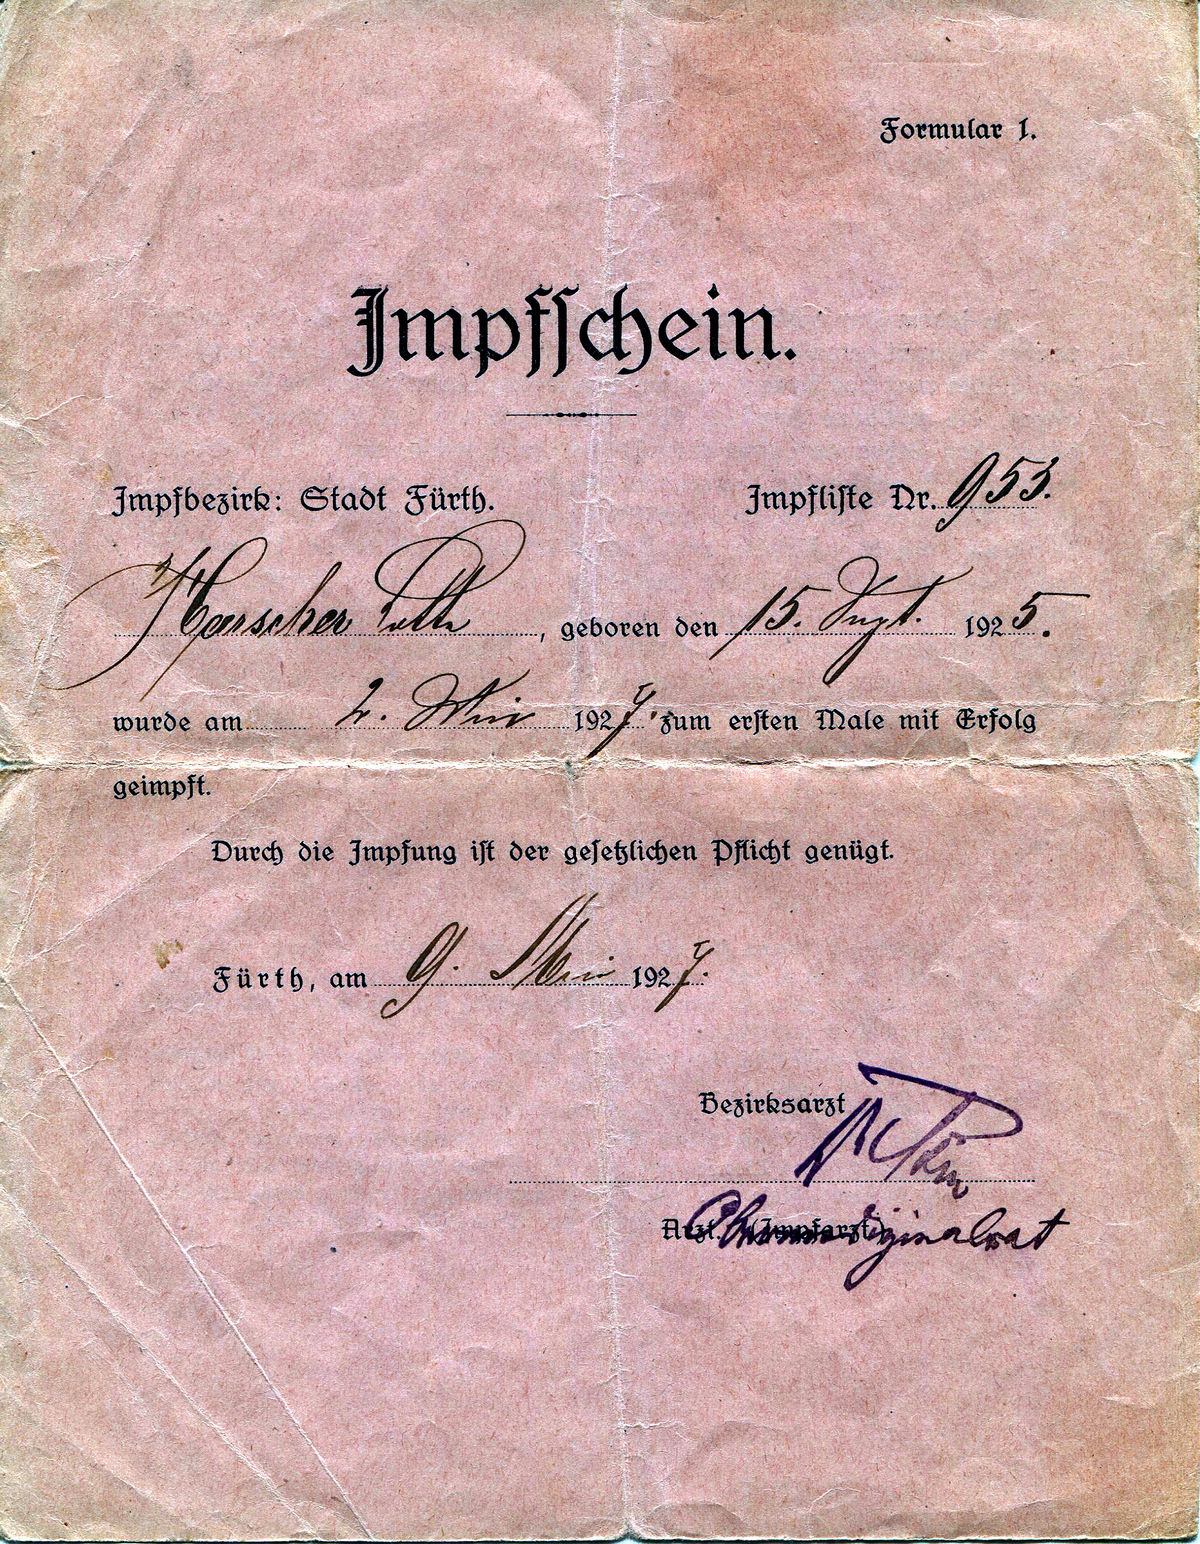 Formular 1.
Impfschein.
Impfbezirk: Stadt Fürth. Impfliste Nr. 953.
, geboren den 15. Sept. 1925.
wurde am 2. Mai 1927. zum ersten Male mit Erfolg
geimpft.
Durch die Impfung ist der gesetzlichen Pflicht genügt.
Fürth, am 9. Mai 1927.
Bezirksarzt
Arzt. (Impfarzt).